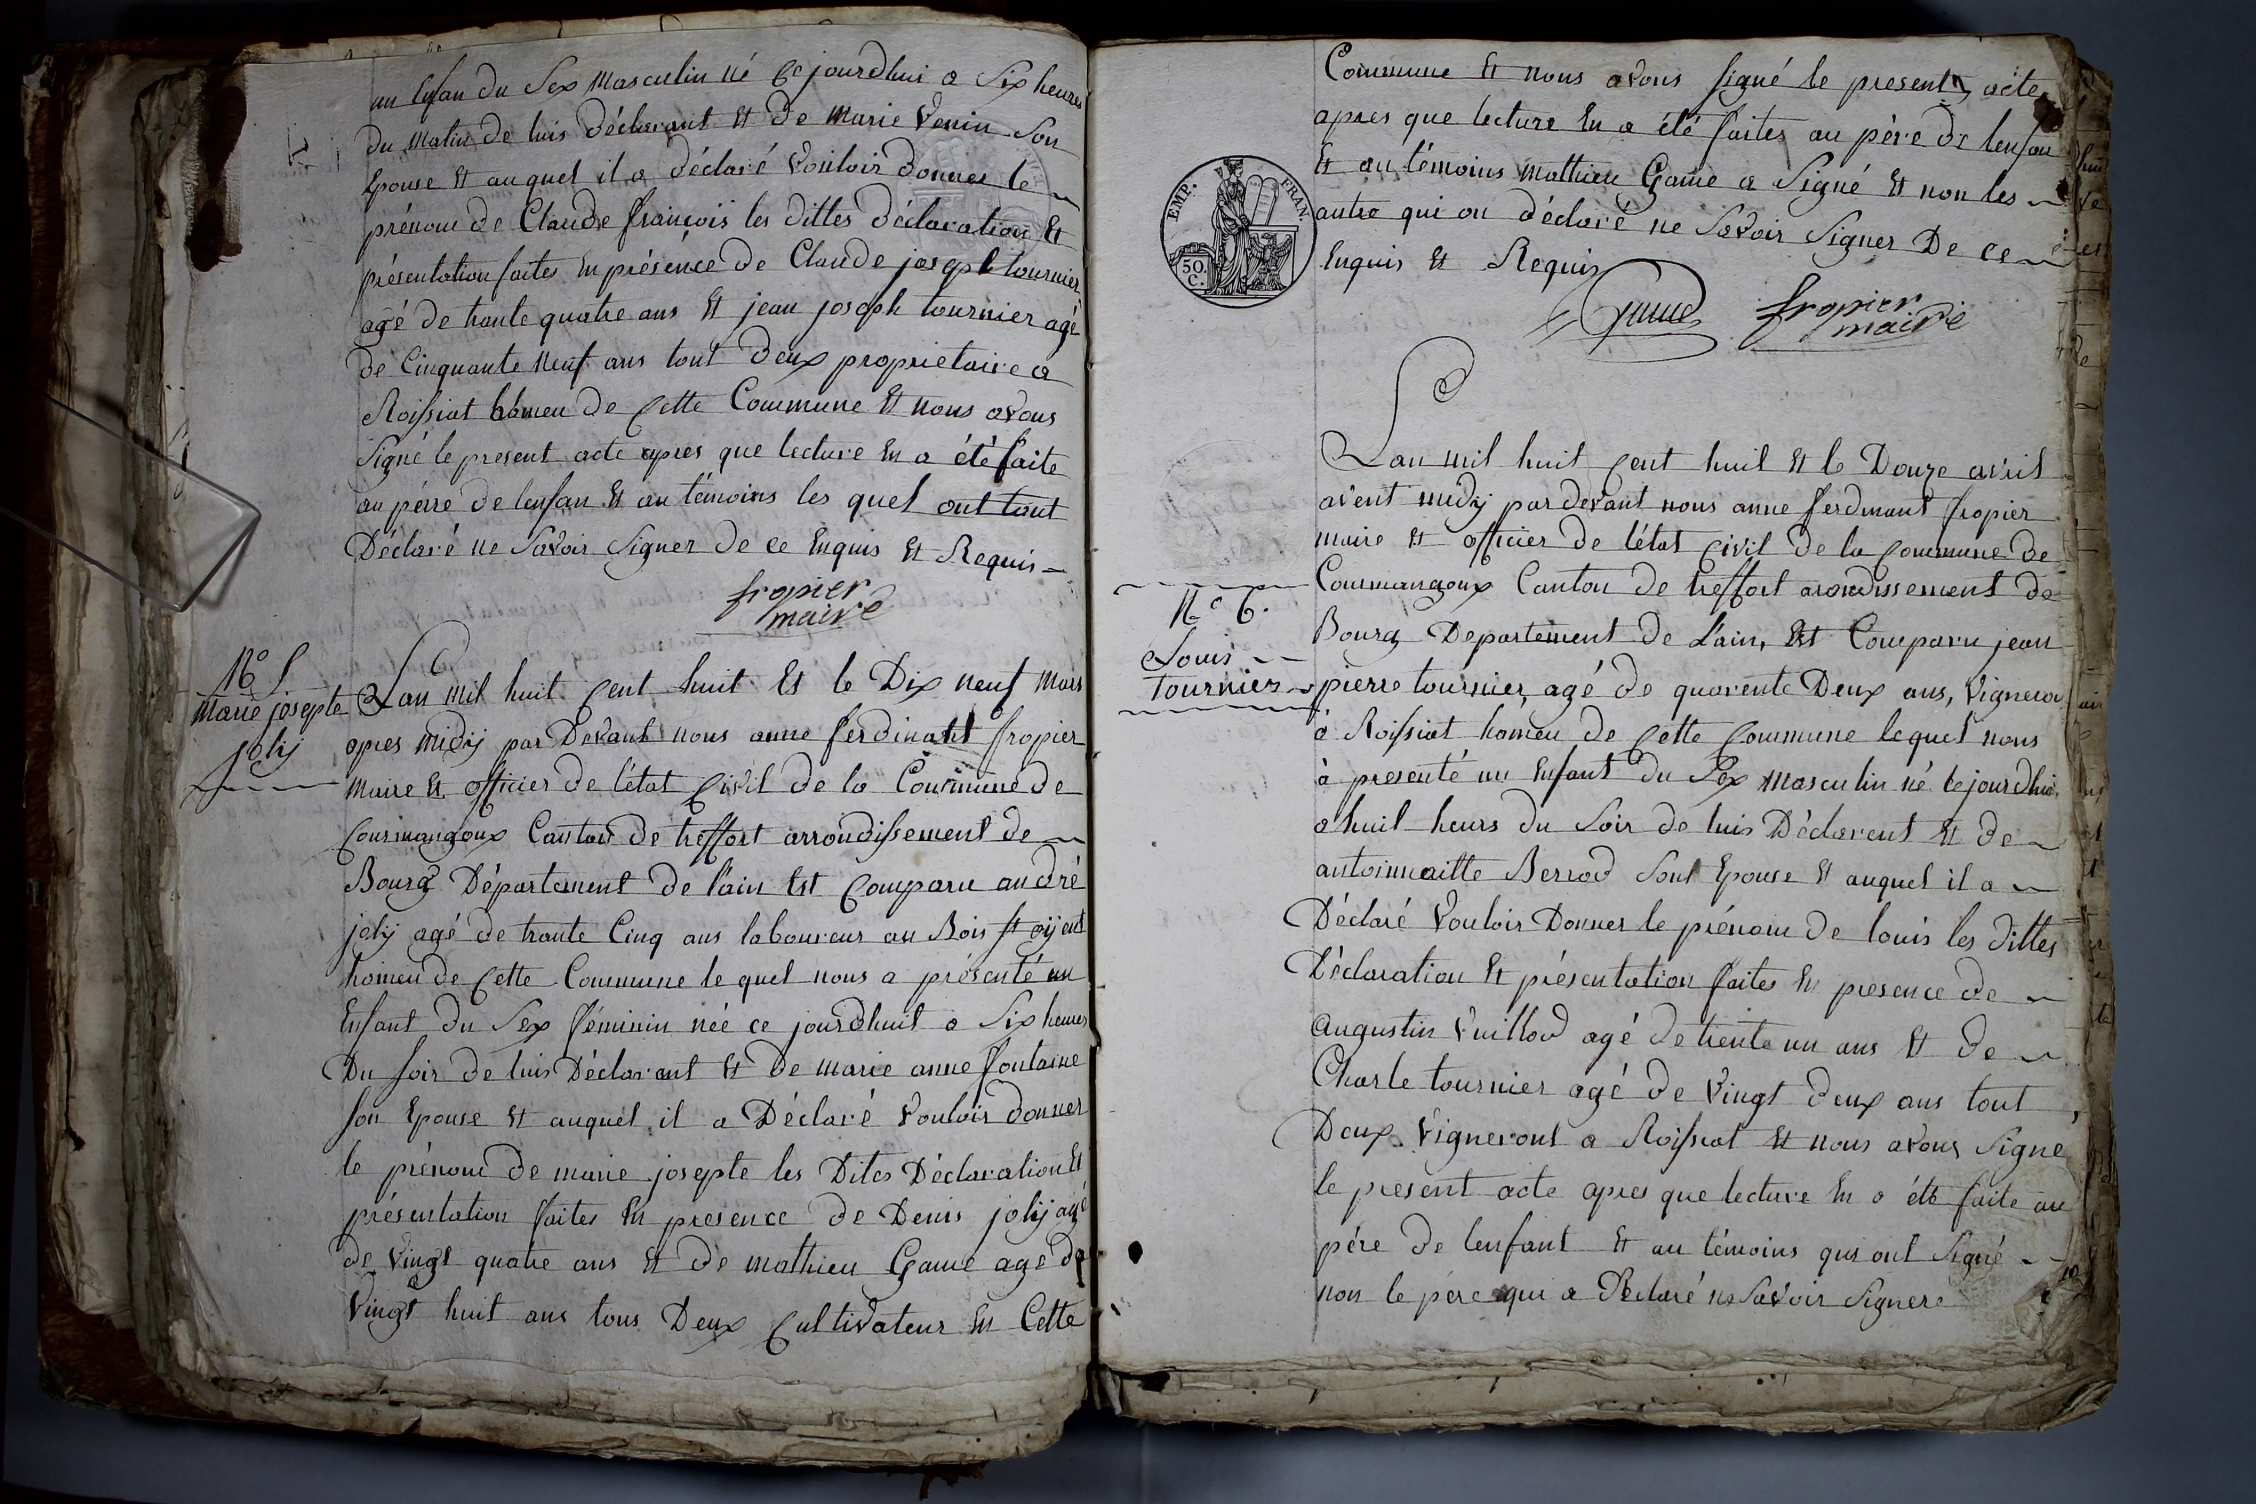 un Enfan du Sex masculin né Ce jourdhui a Six heures
du matin de luis déclarant Et de marie Venin Son
Epouse Et auquel il a déclaré Vouloir donner le
prénom de Claude françois les dittes déclaration Et
présentation faites En présence de Claude joseph tournier
agé de trante quatre ans Et jean joseph tournier agé
de Cinquante neuf ans tout deux proprietaire a
Roissiat hömeu de Cette Commune Et nous avons
Signé le present acte apres que lecture En a été faite
au pérre de lenfan Et au témoins les quel ont tout
Déclaré ne Savoir Signer de ce Enquis Et Requis
fropier
maire
No 5
marie josepte
joly
Lan mil huit Cent huit Et le Dix neuf mars
apres midy par Devant nous anne ferdinant fropier
maire Et officier de l'état Civil de la Commune de
Courmangoux Canton de treffort arrondissement de
Bourg Département de l'ain Est Comparu andré
joly agé de trante Cinq ans laboureur au Bois
homeu de Cette Commune le quel nous a présenté un
Enfant du Sex féminin née ce jourdhuit a Six heures
Du soir de luis Déclarant Et de marie anne fontaine
son Epouse Et auquel il a Déclaré Vouloir donner
le prénom de marie josepte les Dites Déclaration Et
présentation faites En presence de Denis joly agé
de Vingt quatre ans Et de mathieu Game age de
Vingt huit ans tous Deux Cultivateur En Cette
Commune Et nous avons signé le present acte
apres que lecture En a été faites au père de lenfan
Et au témoins mathieu Game a Signé Et non les
autre qui on déclaré ne Savoir Signer De ce
Enquis Et Requis
EMP. FRAN.
50.
C.
Game
fropier
maire
Lan mil huit Cent huit Et le Douze avril
avent midy par devant nous anne ferdinant fropier
maire Et officier de l'état Civil de la Commune de
Courmangoux Canton de treffort arondissement de
Bourg Departement de L'ain, Est Comparu jean
No 6.
Louis
tournier
pierre tournier, agé de quarente Deux ans, Vigneron
à Roissiat homeu de Cette Commune lequel nous
à presenté un Enfant du Sex masculin né Cejourdhui
a huit heurs du Soir de luis Déclarent Et de
antoinnaitte Berrod Sont Epouse Et auquel il a
Déclaré Vouloir Donner le prénom de louis les dittes
Déclaration Et présentation faites En presence de
augustin Vuillod agé de trente un ans Et de
Charle tournier agé de Vingt deux ans tout
Deux Vigneront a Roissiat Et nous avons Signé
le present acte apres que lecture En a été faite au
pére de lenfant Et au témoins qui ont Signé
non le pére qui a Déclaré ne Savoir Signere